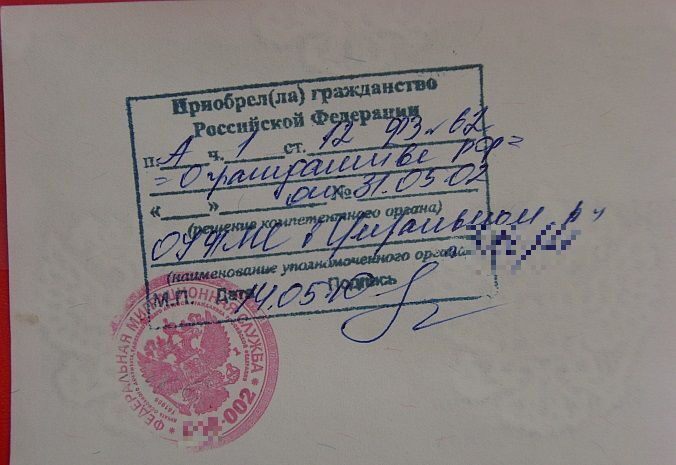 Приобрел(ла) гражданство
Российской Федерации
п. А ч. 1 ст. 12 ФЗ № 62
"О гражданстве РФ"
«    » от № 31.05.02
(решение компетентного органа)
ОУФМС в р-
(наименование уполномоченного органа)
М.П. Дата 14.05.10 Подпись
* ФЕДЕРАЛЬНАЯ МИГРАЦИОННАЯ СЛУЖБА *
-002